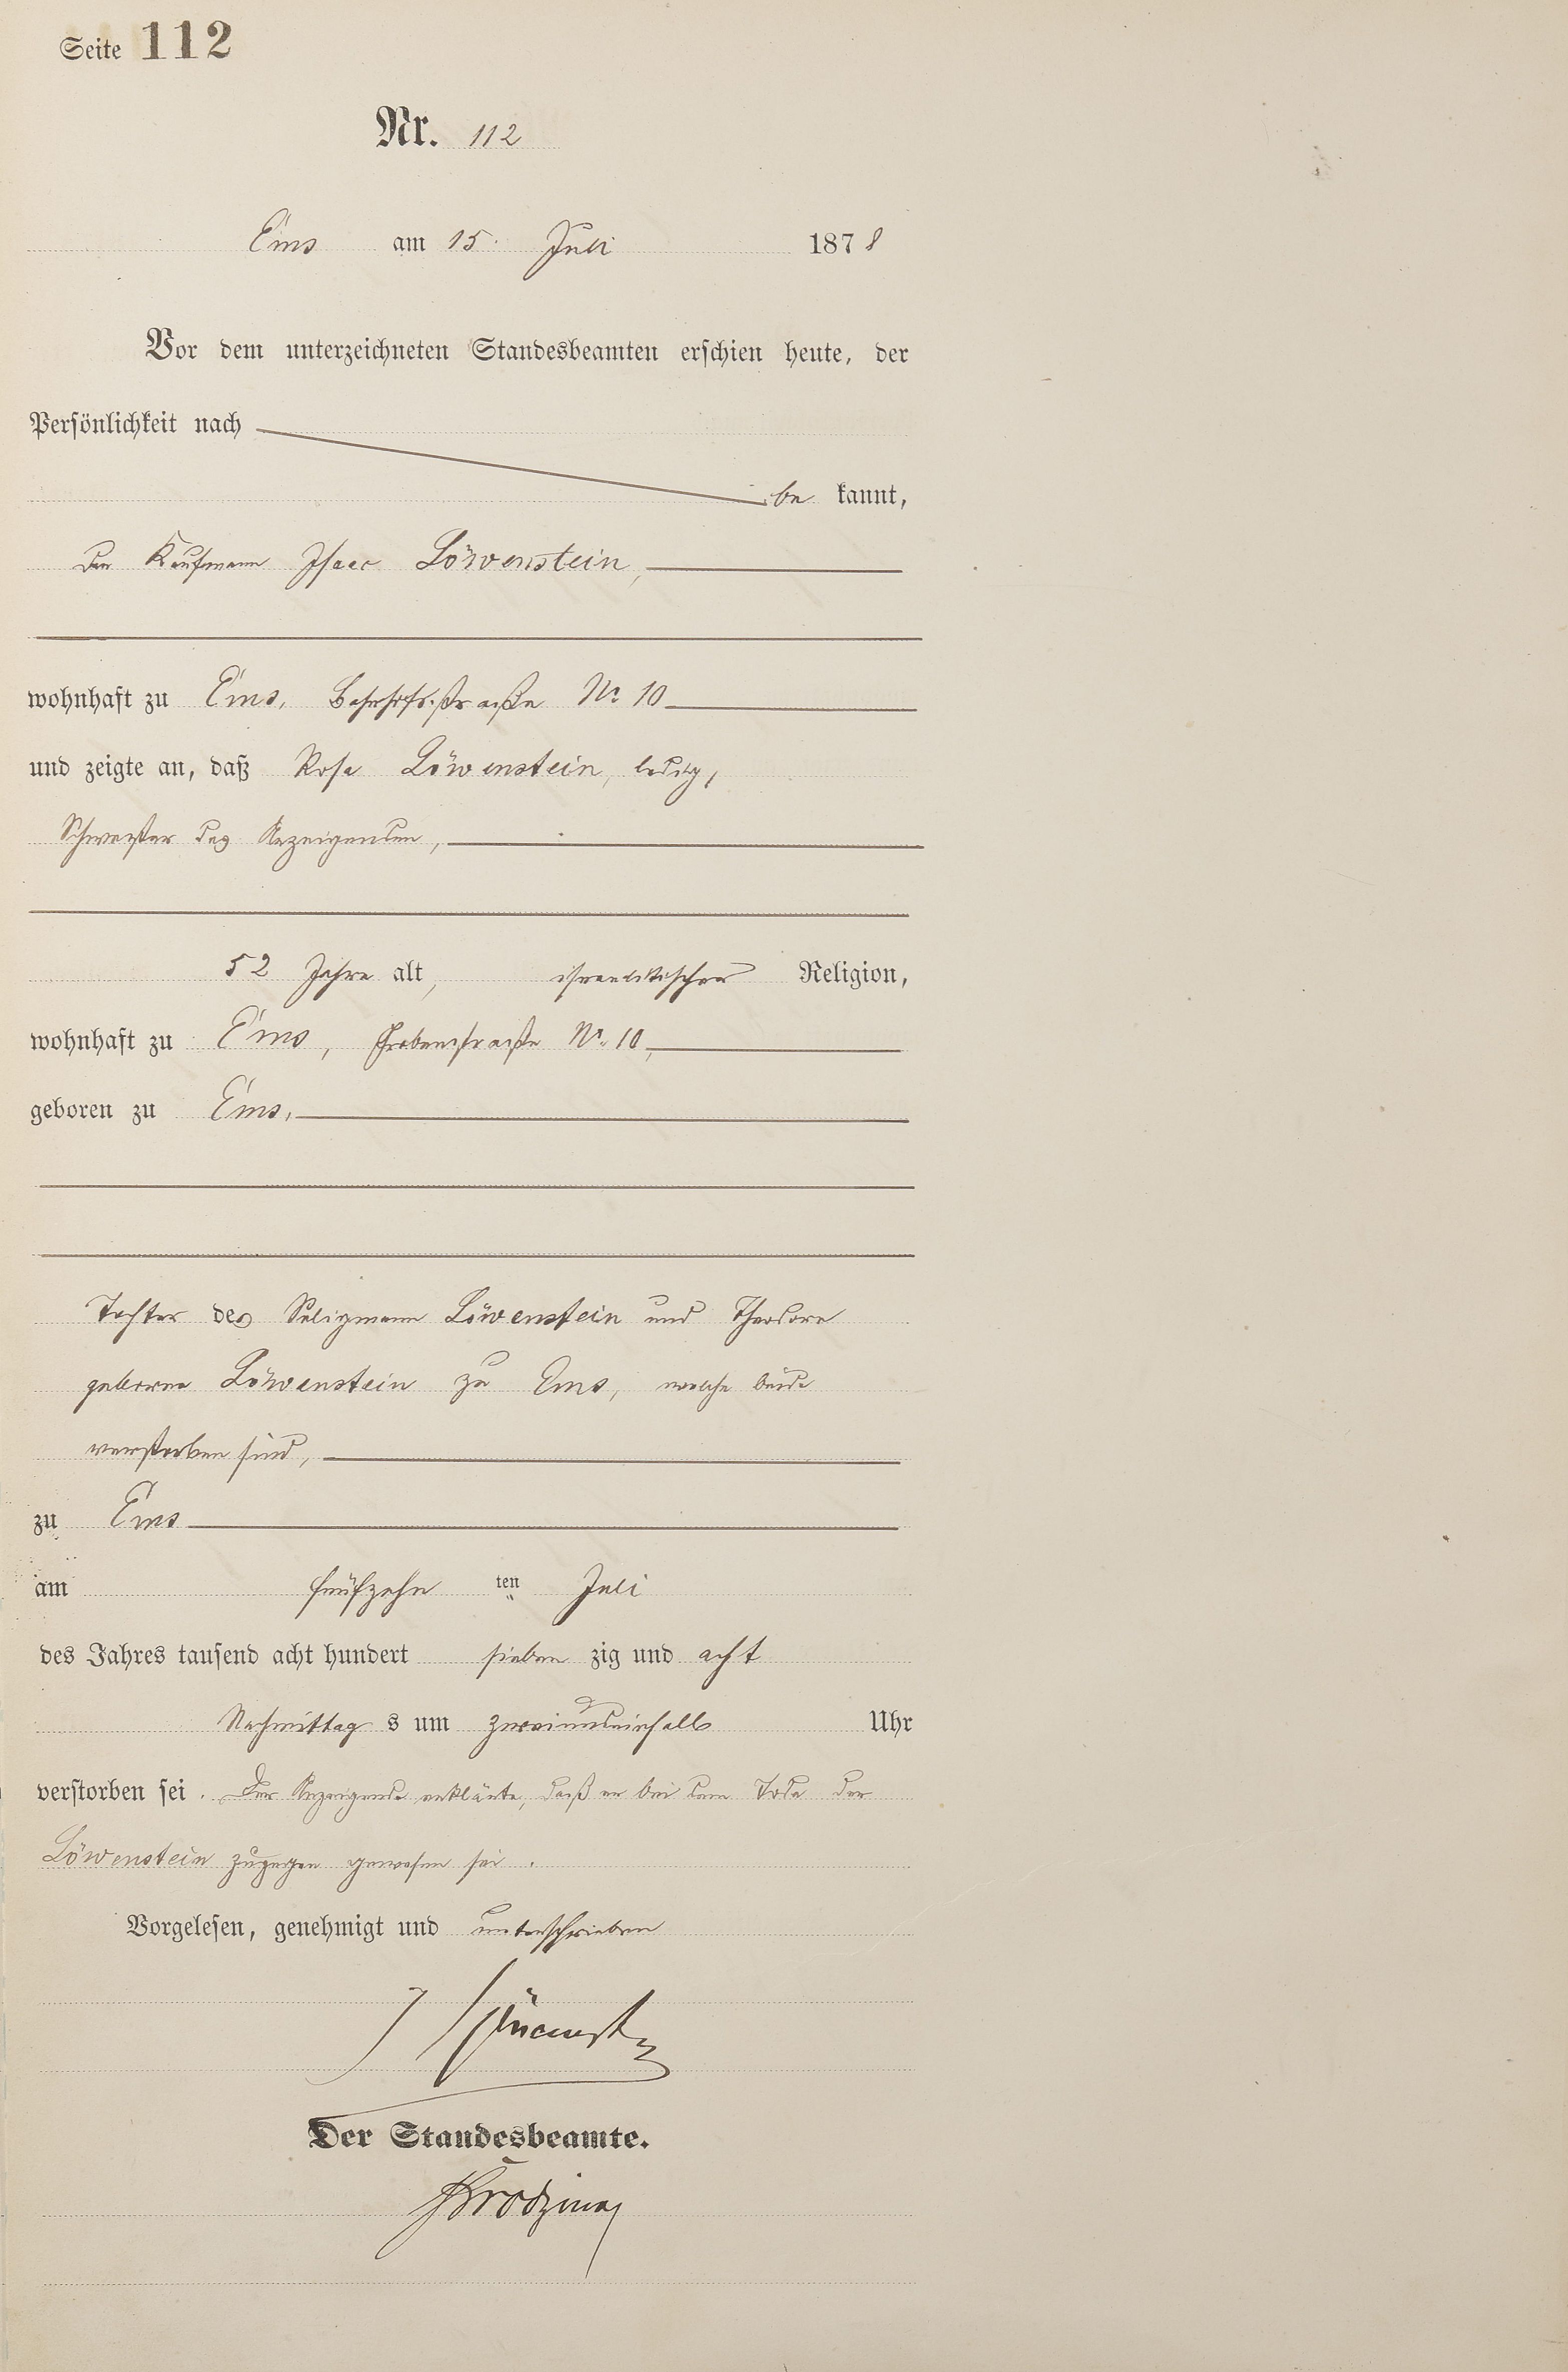 Seite 112
Nr. 112
Ems am 15. Juli 1878
Vor dem unterzeichneten Standesbeamten erschien heute, der
Persönlichkeit nach
be kannt,
der Kaufmann Isaac Löwenstein,
wohnhaft zu Ems, Bahnhofsstraße No 10
und zeigte an, daß Rosa Löwenstein, ledig,
Schwester des Anzeigenden,
52 Jahre alt, israelitischer Religion,
wohnhaft zu Ems, Grabenstraße No. 10,
geboren zu Ems,
Tochter des Seligmann Löwenstein und Theodore
geborene Löwenstein zu Ems, welche beide
verstorben sind,
zu Ems
am fünfzehn ten Juli
des Jahres tausend acht hundert sieben zig und acht
Nachmittag s um zweiundeinhalb Uhr
verstorben sei. Der Anzeigende erklärte, daß er bei dem Tode der
Löwenstein zugegen gewesen sei.
Vorgelesen, genehmigt und unterschrieben
J Löwenstein
Der Standesbeamte.